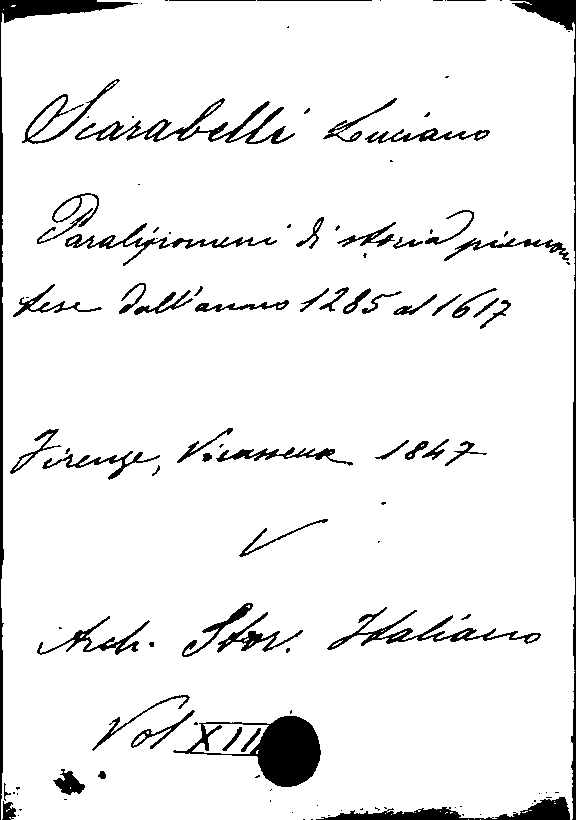 Scarabelli Luciano
Paralipomeni di storia piemon
tese dall'anno 1285 al 1617
Firenze, Vieusseux 1847
Arch. Stor. Italiano
Vol XIII